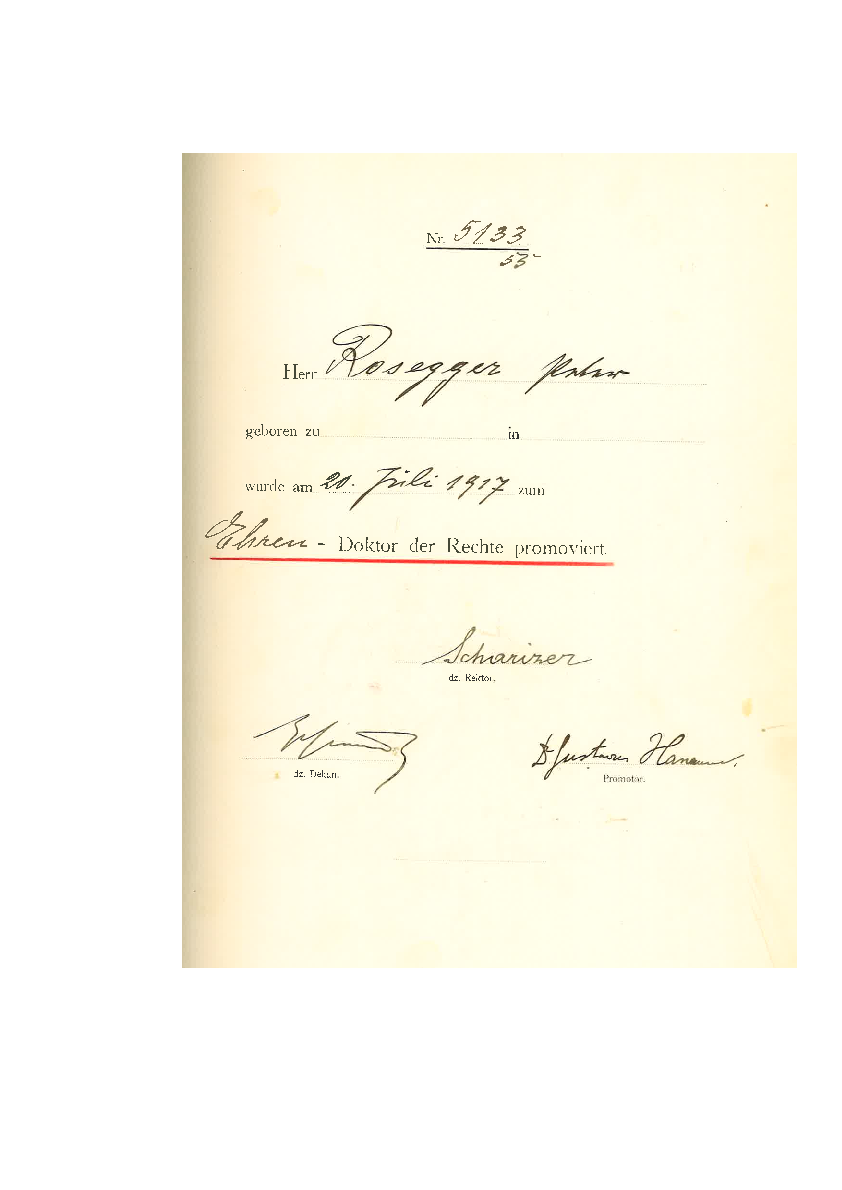 Nr. 5133
53
Herr Rosegger Peter
geboren zu in
wurde am 20. Juli 1917 zum
Ehren - Doktor der Rechte promoviert.
Scharizer
dz. Rektor.
Dr Gustav
dz. Dekan.
Promotor.